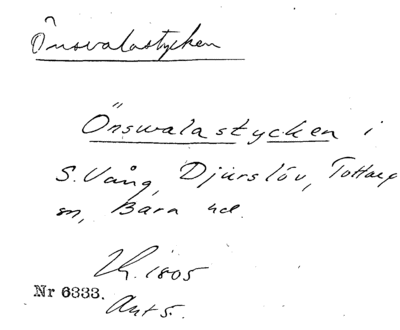 Önsvalastycken
Önsvalastycken i
S. Vång, Djurslöv, Tottarp
sn, Bara hd.
Lk. 1805
Nr 6333. Akt 5.